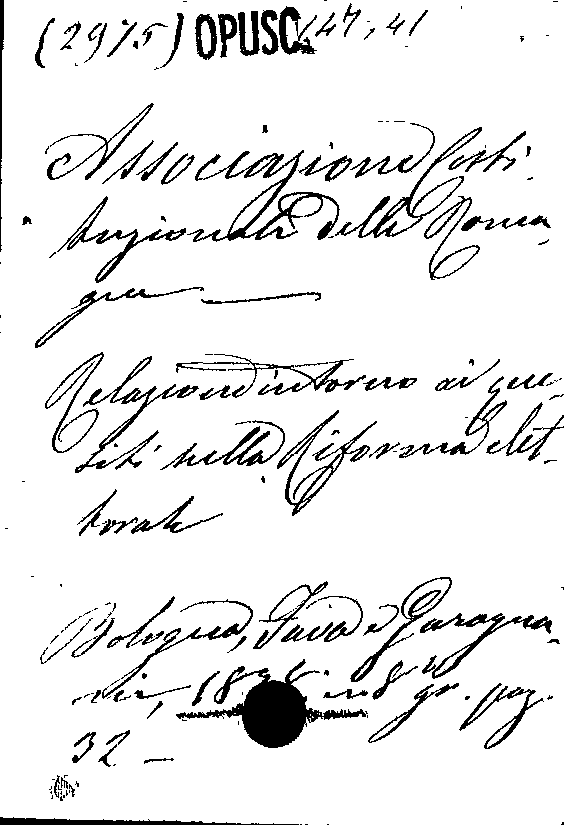 (2975) OPUSC. 147, 41
Associazione Costi
tuzionale delle Roma
gne —
Relazione intorno ai que-
siti nella Riforma elet-
torale
Bologna, Fava e Garagna-
ni, in 8° gr. pag.
32 —